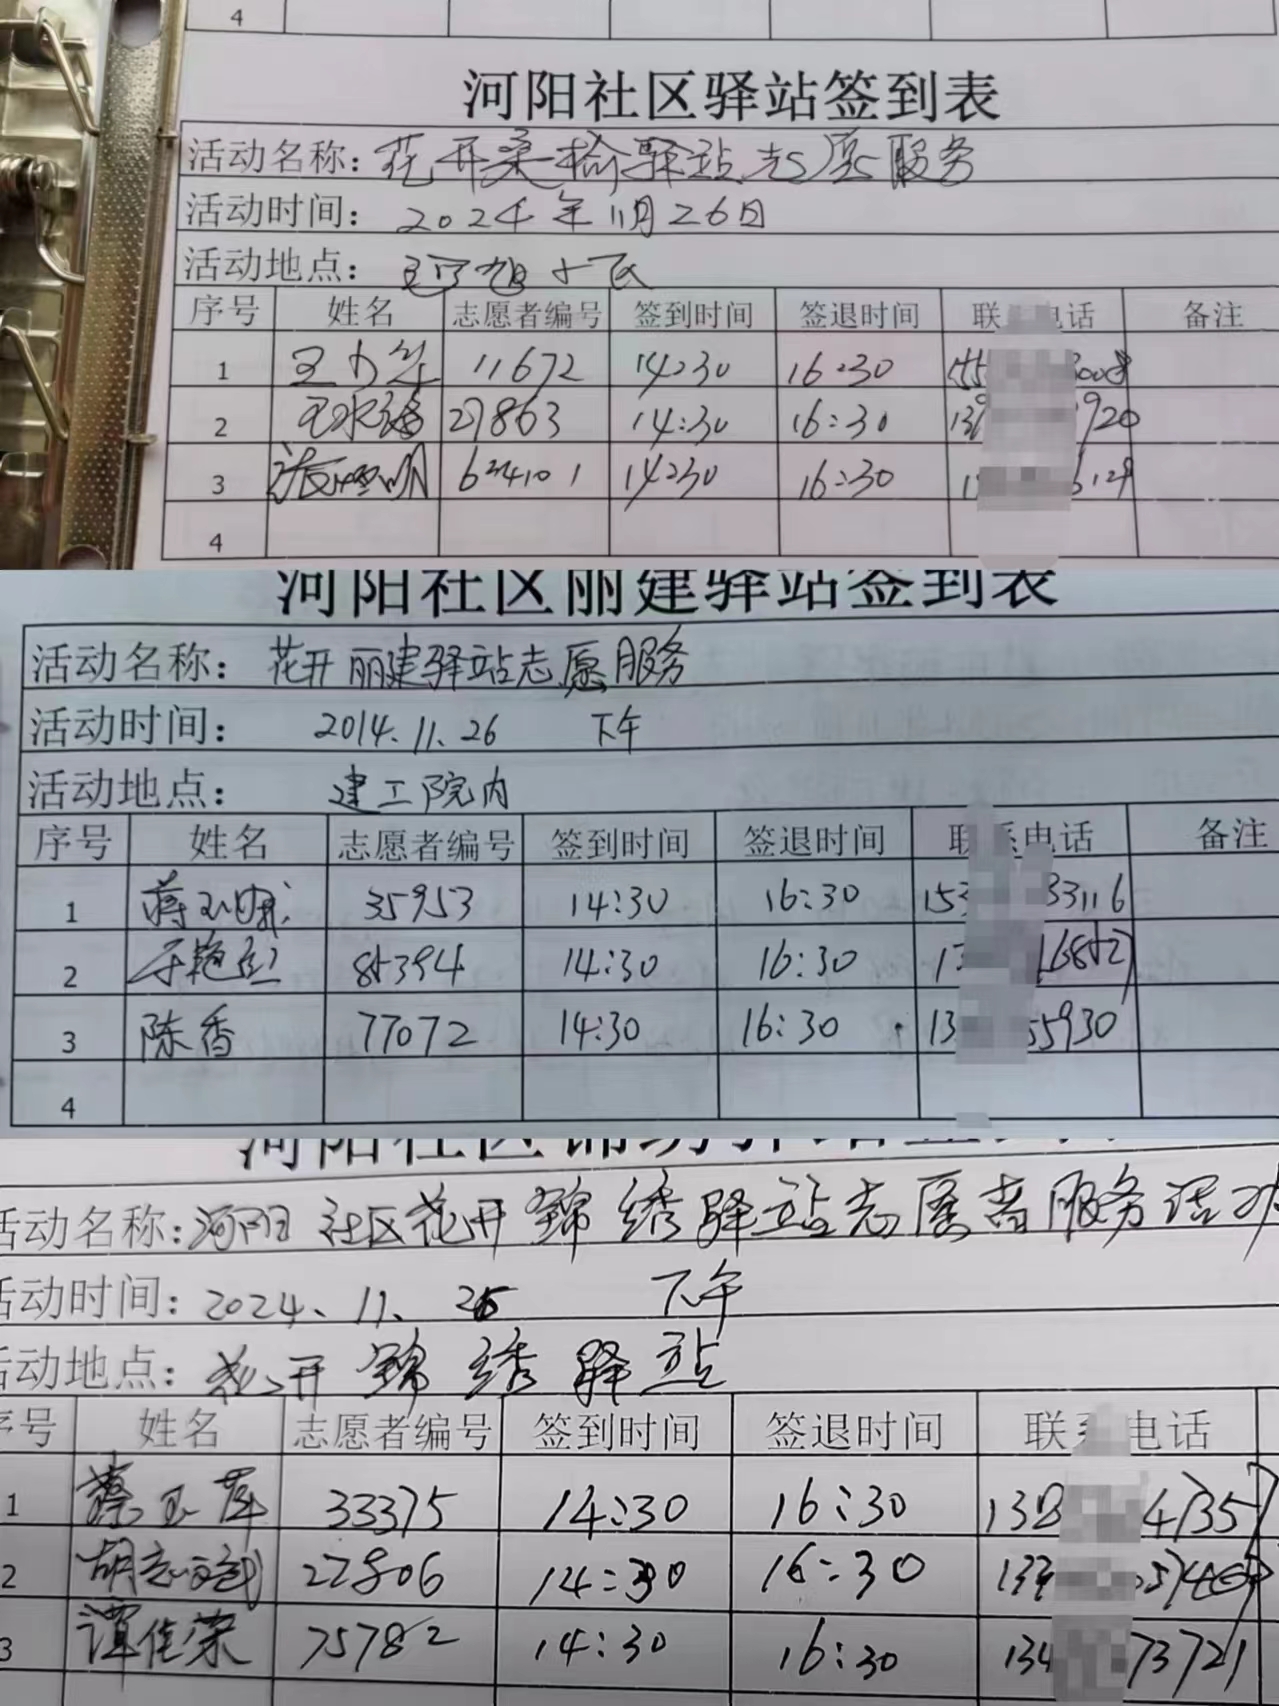 4
河阳社区驿站签到表
活动名称：花开桑榆驿站志愿服务
活动时间：2024年11月26日
活动地点：
序号 姓名 志愿者编号 签到时间 签退时间 联 电话 备注
1 11672 14:30 16:30
2 27863 14:30 16:30 920
3 624101 14:30 16:30 6129
4
河阳社区丽建驿站签到表
活动名称：花开丽建驿站志愿服务
活动时间：2014.11.26 下午
活动地点：建工院内
序号 姓名 志愿者编号 签到时间 签退时间 联系电话 备注
1 35953 14:30 16:30 153 33116
2 85394 14:30 16:30 13 16852
3 陈香 77072 14:30 16:30 13 55930
4
河阳社区锦绣驿站签到表
活动名称：河阳社区花开锦绣驿站志愿者服务活动
活动时间：2024、11、26 下午
活动地点：花开锦绣驿站
序号 姓名 志愿者编号 签到时间 签退时间 联系电话
1 蔡玉萍 33375 14:30 16:30 138 4735
2 胡志斌 27806 14:30 16:30 133
3 谭佳荣 75782 14:30 16:30 134 73721